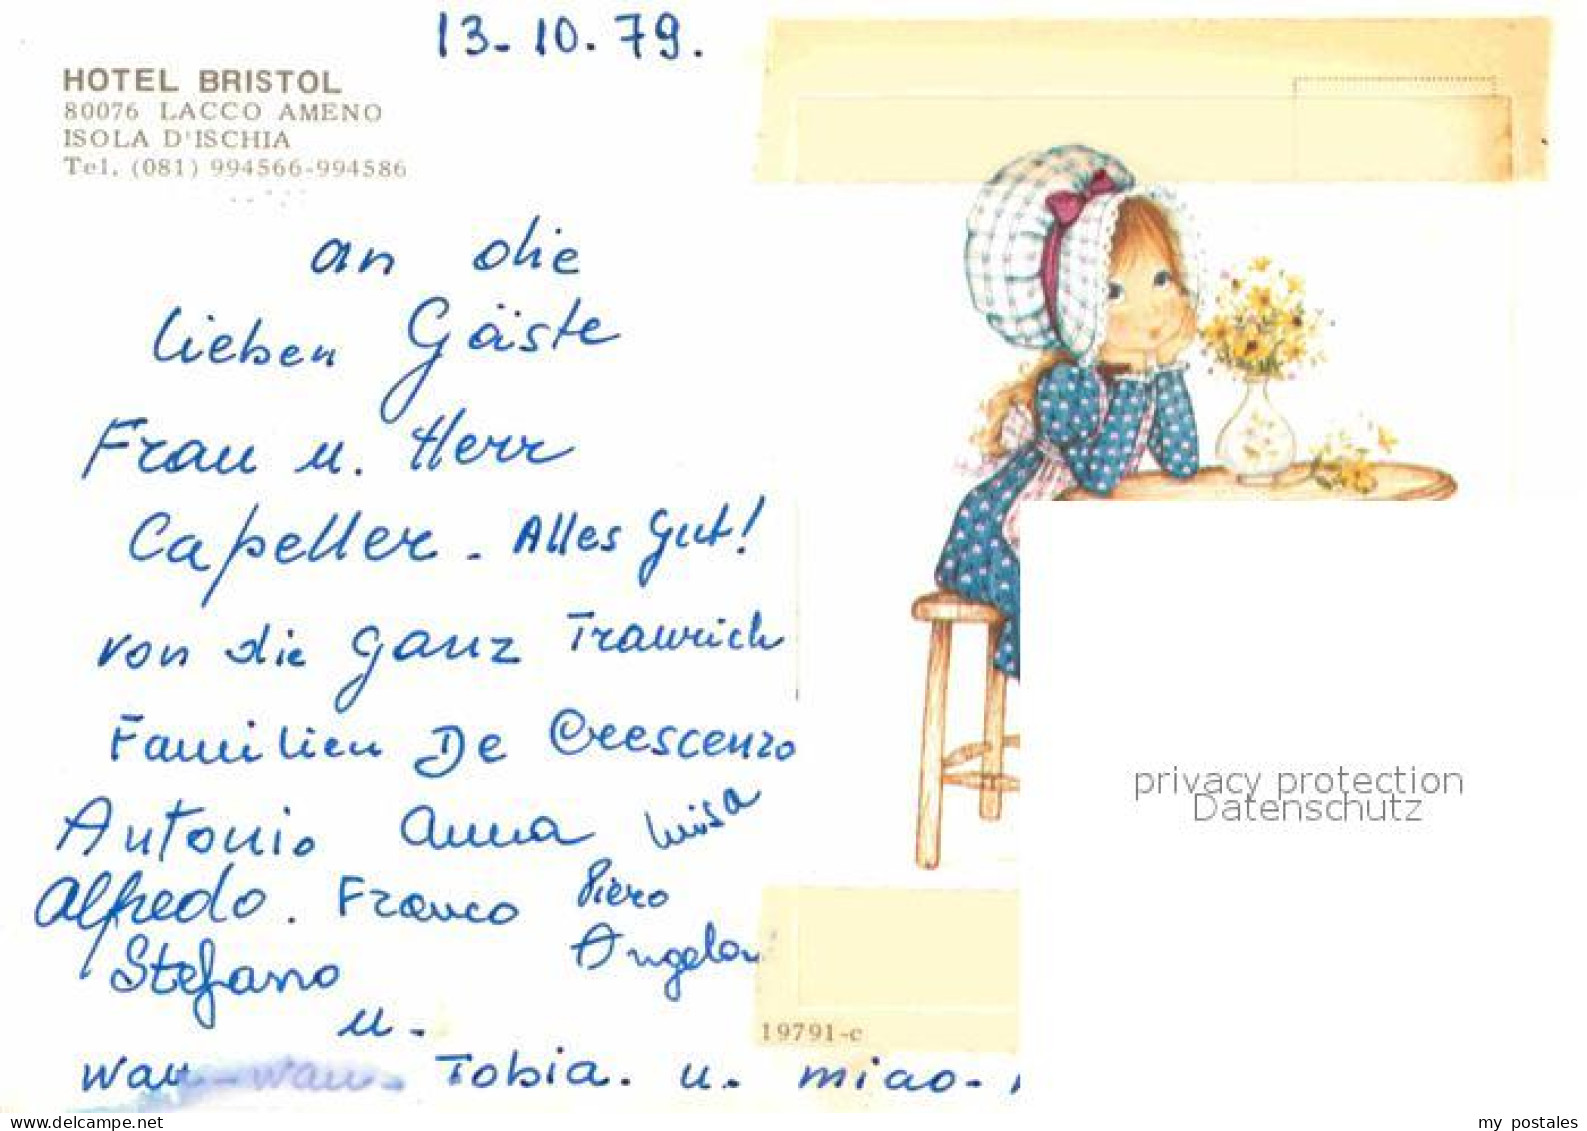 13-10.79.
HOTEL BRISTOL
80076 LACCO AMENO
ISOLA D'ISCHIA
Tel. (081) 994566-994586
an die
lieben Gäste
Frau u. Herr
Capeller - Alles Gut!
von die ganz Traurich
Familien De Crescenzo
Antonio Anna Luisa
Alfredo. Franco Piero
Stefano Angela
u.
wau-wau- Tobia. u. miao-
19791-c
privacy protection
Datenschutz
www.delcampe.net
my_postales